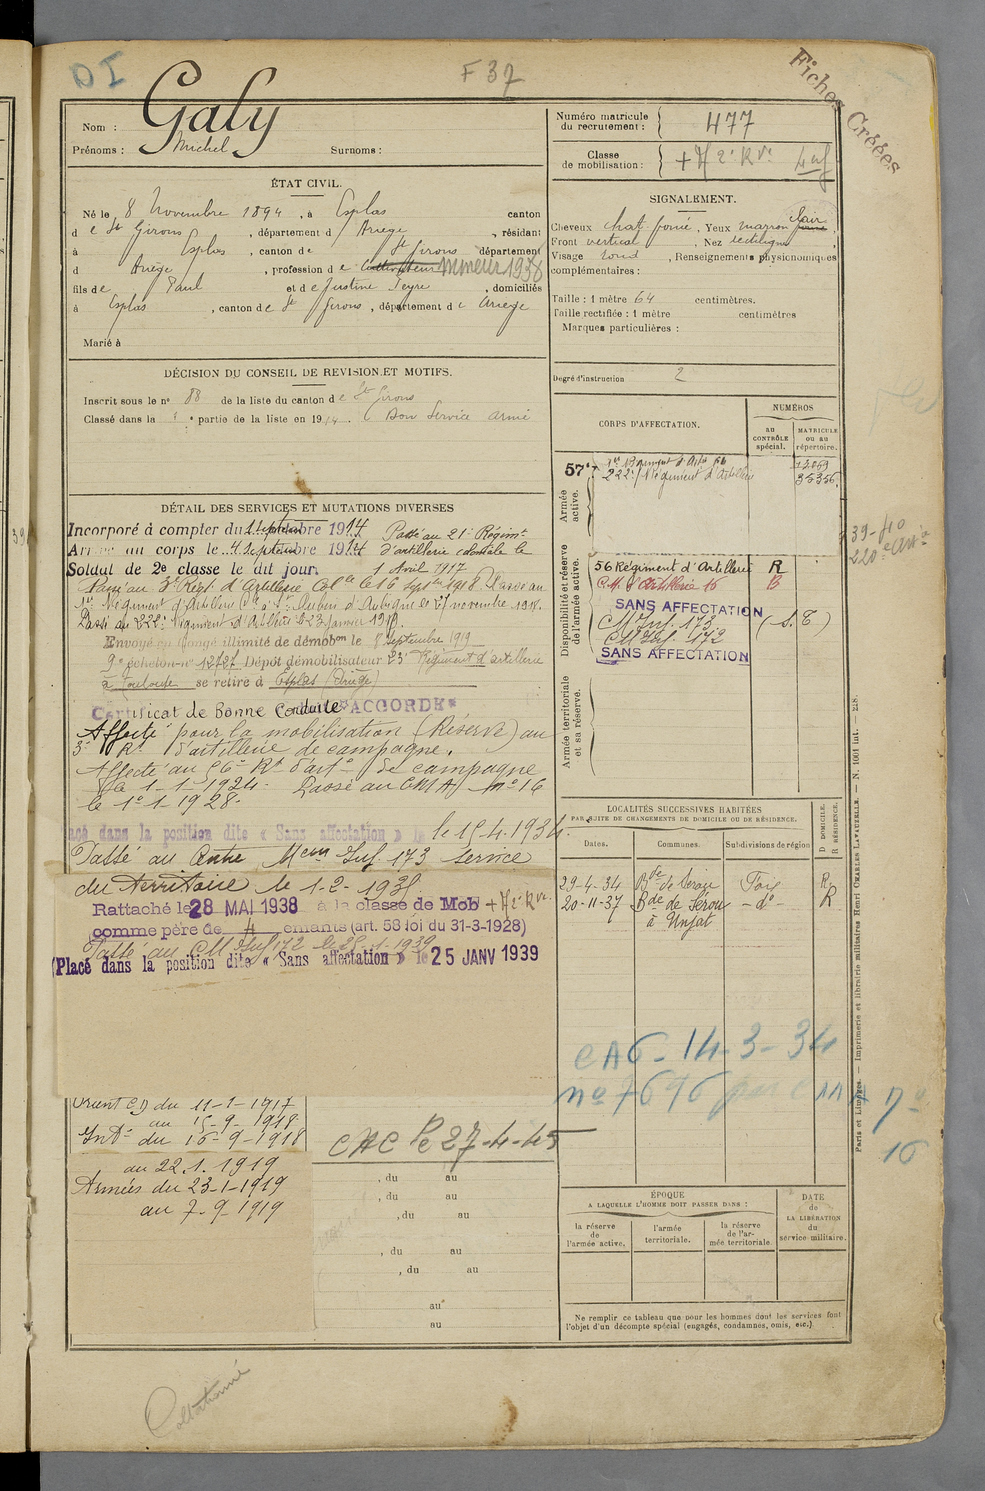 DI
F 37
Fiches Créées
Nom : Galy
Prénoms : Michel Surnoms :
Numéro matricule
du recrutement : 477
Classe
de mobilisation :
ÉTAT CIVIL.
Né le 8 Novembre 1894, à Esplas canton
d e St Girons, département d Ariège, résidant
à Esplas, canton de St Girons département
d Ariège, profession de Cultivateur mineur 1938
fils de Paul et de Justine Peyre, domiciliés
à Esplas, canton de St Girons, département de Ariège
Marié à
SIGNALEMENT.
Cheveux chat. foncé, Yeux marron clair
Front vertical, Nez rectiligne
Visage rond, Renseignements physionomiques
complémentaires :
Taille : 1 mètre 64 centimètres.
Taille rectifiée : 1 mètre centimètres
Marques particulières :
Degré d'instruction 2
DÉCISION DU CONSEIL DE REVISION ET MOTIFS.
Inscrit sous le no 88 de la liste du canton de St Girons
Classé dans la 1 e partie de la liste en 1914. Bon Service armé
DÉTAIL DES SERVICES ET MUTATIONS DIVERSES
Incorporé à compter du 1 septembre 1914 Passé au 21e Régimt
Arrivé au corps le 4 septembre 1914 d'artillerie coloniale le
Soldat de 2e classe le dit jour. 1 Avril 1917
Passé au 3e Régt d'Artillerie Colle le 16 Septbre 1918. Passé au
1er Régiment d'Artillerie Cle à St Aubin d'Aubigné le 27 novembre 1918.
Passé au 222e Régiment d'Artillerie le 23 janvier 1919.
Envoyé en congé illimité de démobon le 8 septembre 1919
9e échelon no 12727 Dépôt démobilisateur 23e Régiment d'artillerie
à Toulouse se retire à Esplas (Ariège)
Certificat de Bonne Conduite "ACCORDÉ"
Affecté pour la mobilisation (Réserve) au
3e Rt d'artillerie de campagne.
Affecté au 56e Rt d'arte de campagne
le 1-1-1924. Passé au CMA no 16
le 1e 1 1928.
Placé dans la position dite « Sans affectation » le 15.4.1934.
Passé au Centre Mon Inf. 173 service
du territoire le 1-2-1938
Rattaché le 28 MAI 1938 à la classe de Mob
comme père de 4 enfants (art. 58 loi du 31-3-1928)
Passé au CM Inf 172 le 25.1.1939
Placé dans la position dite « Sans affectation » le 25 JANV 1939
CORPS D'AFFECTATION.
NUMÉROS
au
CONTRÔLE
spécial.
MATRICULE
ou au
répertoire.
Armée
active.
57e
222e Régiment d'Artillerie
39-40
Disponibilité et réserve
de l'armée active.
56 Régiment d'Artillerie R
C.M. d'Artillerie 16 B
SANS AFFECTATION
CM Inf. 173 (S.T)
CM Inf. 172
SANS AFFECTATION
Armée territoriale
et sa réserve.
LOCALITÉS SUCCESSIVES HABITÉES
PAR SUITE DE CHANGEMENTS DE DOMICILE OU DE RÉSIDENCE.
Dates. Communes. Subdivisions de région
D DOMICILE.
R RÉSIDENCE.
29-4-34 Bde de Sérou Foix R
20-11-37 Bde de Sérou - do - R
à Unjat
CA6 - 14-3-34
no 7696
no
16
Orient CD du 11-1-1917
au 15-9-1918
Intr du 16-9-1918
au 22.1.1919
Armées du 23-1-1919
au 7-9-1919
CAC le 27-4-45
, du au
, du au
, du au
, du au
, du au
au
au
ÉPOQUE
A LAQUELLE L'HOMME DOIT PASSER DANS :
la réserve
de
l'armée active.
l'armée
territoriale.
la réserve
de l'ar-
mée territoriale.
DATE
de
LA LIBÉRATION
du
service militaire.
Ne remplir ce tableau que pour les hommes dont les services font
l'objet d'un décompte spécial (engagés, condamnés, omis, etc.)
Paris et Limoges. — Imprimerie et librairie militaires Henri CHARLES-LAVAUZELLE. — N. 1001 int. — 228.
Collationné